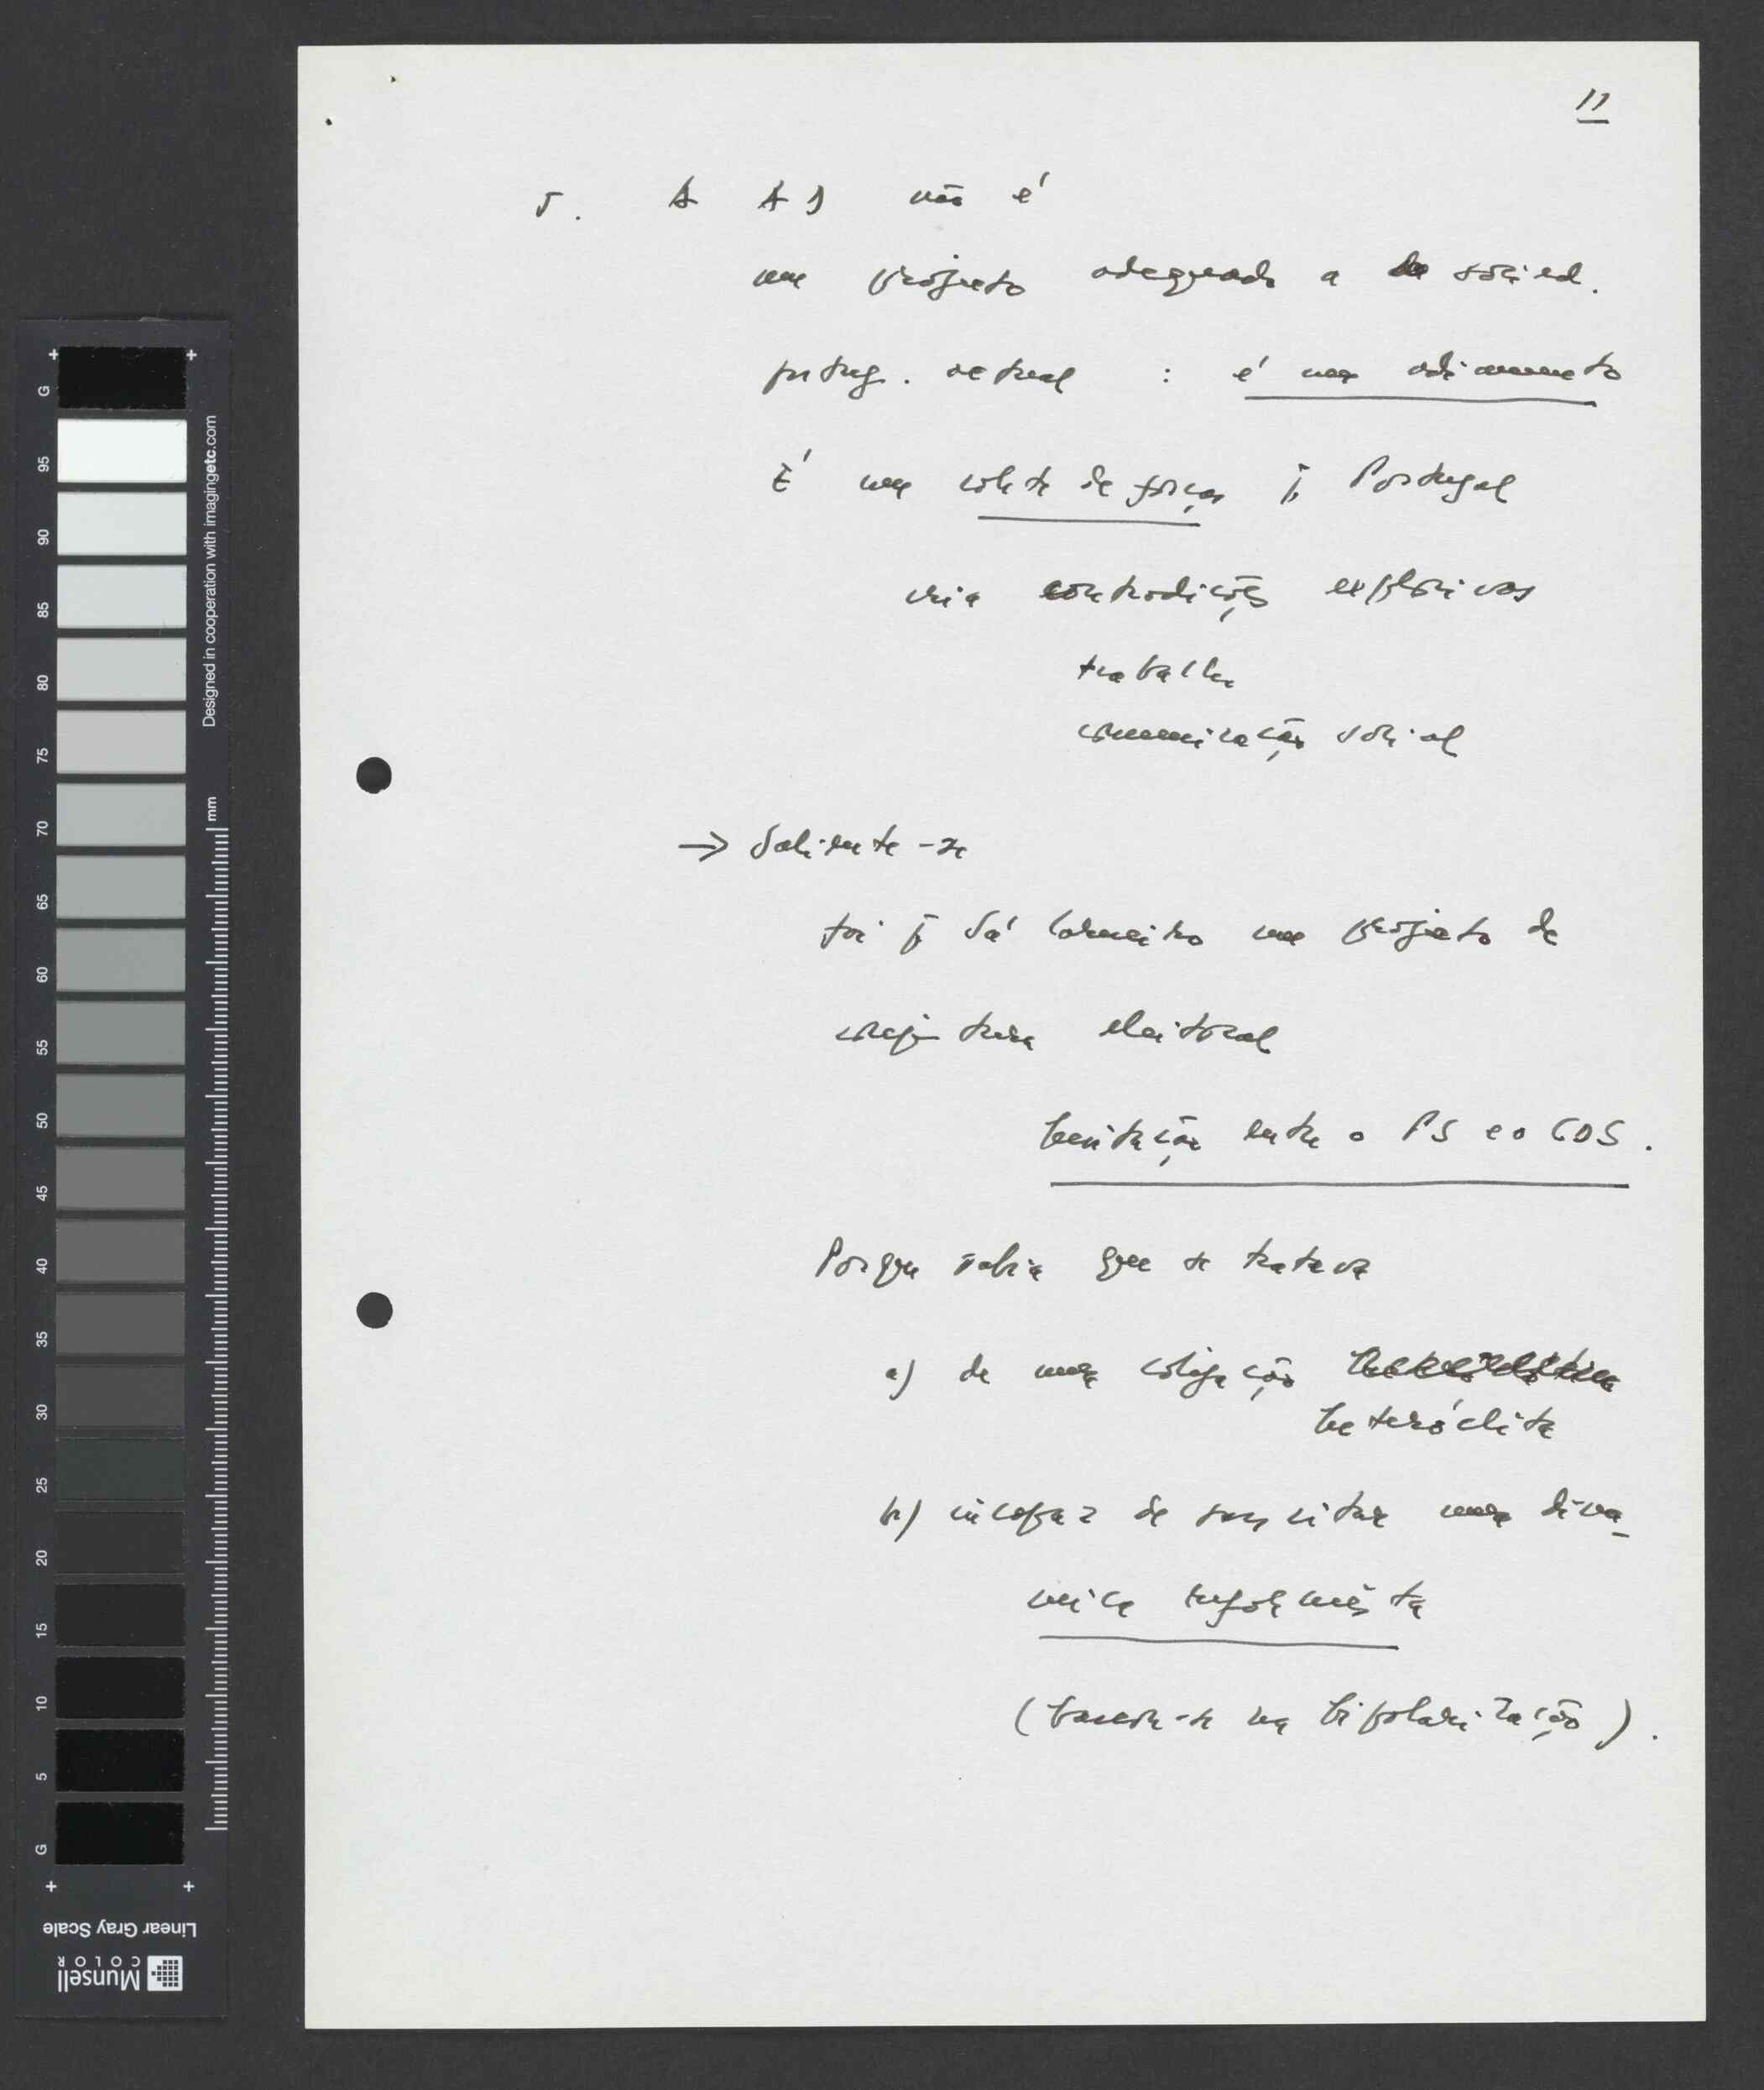 11
5. A AD não é
um projecto adequado a sócied.
portug. actual : é um adiamento
É um colete de forças p. Portugal
cria contradições explosivas
trabalho
comunicação social
→ Saliente-se
foi p. Sá Carneiro um projecto de
conjuntura eleitoral
hesitação entre o PS e o CDS.
Porque sabia que se tratava
a) de uma coligação
heteróclita
b) incapaz de suscitar uma diná-
mica reformista
(baseou-se na bipolarização).
G
95
90
85
80
75
70
65
60
55
50
45
40
35
30
25
20
15
10
5
G
Designed in cooperation with imagingetc.com
mm
Linear Gray Scale
Munsell
COLOR